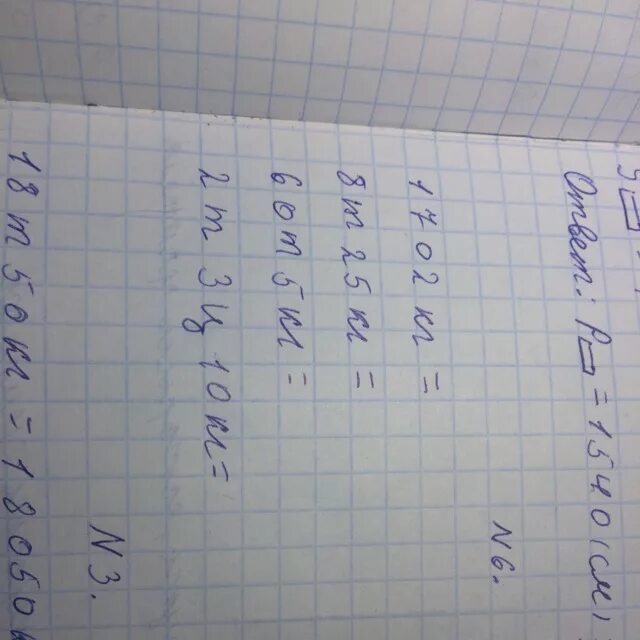 Ответ: P▭=1540(см)
N6.
1702 кг =
8т 25 кг =
60т 5кг =
2т 3ц 10кг=
N3.
18т 50кг=18050